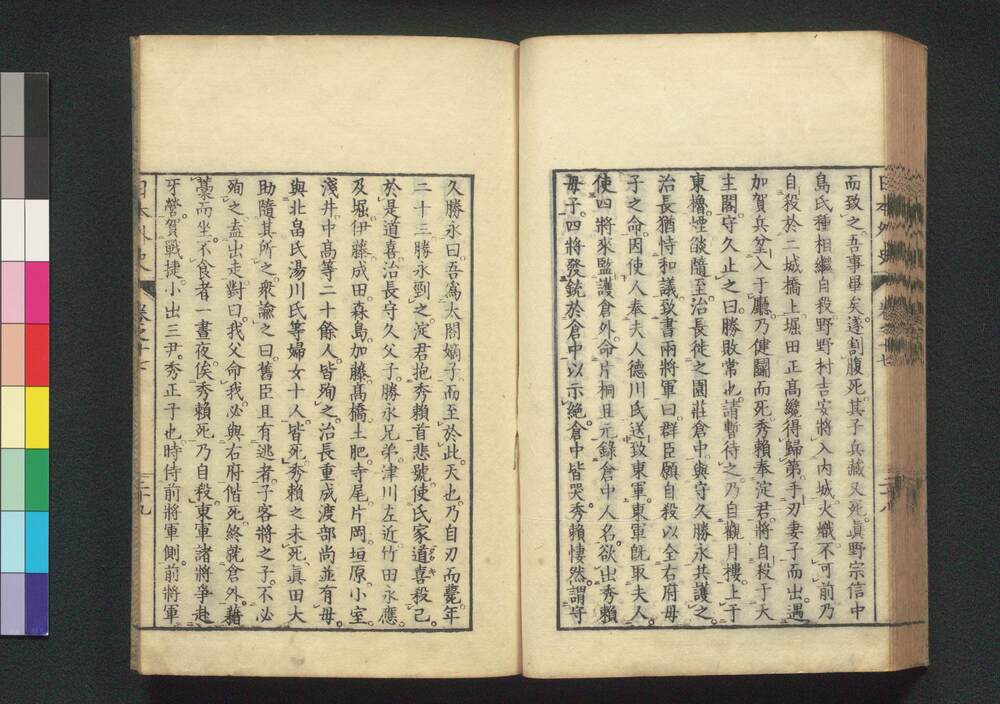 而致之。吾事畢矣。遂割腹死。其子兵藏又死。眞野宗信中
島氏種相繼自殺。野野村吉安將入内城。火熾不可前。乃
自殺於二城橋上。堀田正高纔得歸第。手刃妻子而出。遇
加賀兵坌入于廳。乃健鬪而死。秀賴奉淀君。將自殺于天
主閣。守久止之曰。勝敗常也。請暫待之。乃自觀月樓。上于
東櫓。煙燄隨至。治長徙之園莊倉中。與守久勝永共護之。
治長猶恃和議。致書兩將軍曰。群臣願自殺以全右府母
子之命。因使人奉夫人德川氏。送致東軍。東軍既取夫人。
使四將來監護倉外。命片桐且元錄倉中人名。欲出秀賴
母子。四將發銃於倉中以示絶。倉中皆哭。秀賴悽然。謂守
日本外史 卷之
久勝永曰。吾爲太閤嫡子而至於此。天也。乃自刃而薨。年
二十三。勝永剄之。淀君抱秀賴首悲號。使氏家道喜殺己。
於是道喜治長守久父子。勝永兄弟。津川左近。竹田永應。
及堀伊藤成田森島加藤高橋土肥寺尾片岡垣原小室
淺井中高等二十餘人。皆殉之。治長重成渡部尚並有母。
與北畠氏湯川氏等婦女十人。皆死。秀賴之未死。眞田大
助隨其所之。衆諭之曰。舊臣且有逃者。子客將之子。不必
殉之。盍出走。對曰。我父命我。必與右府偕死。終就倉外。藉
藁而坐。不食者一晝夜。俟秀賴死乃自殺。東軍諸將爭赴
牙營。賀戰捷。小出三尹。秀正子也。時侍前將軍側。前將軍
日本外史 卷之十七 二十九